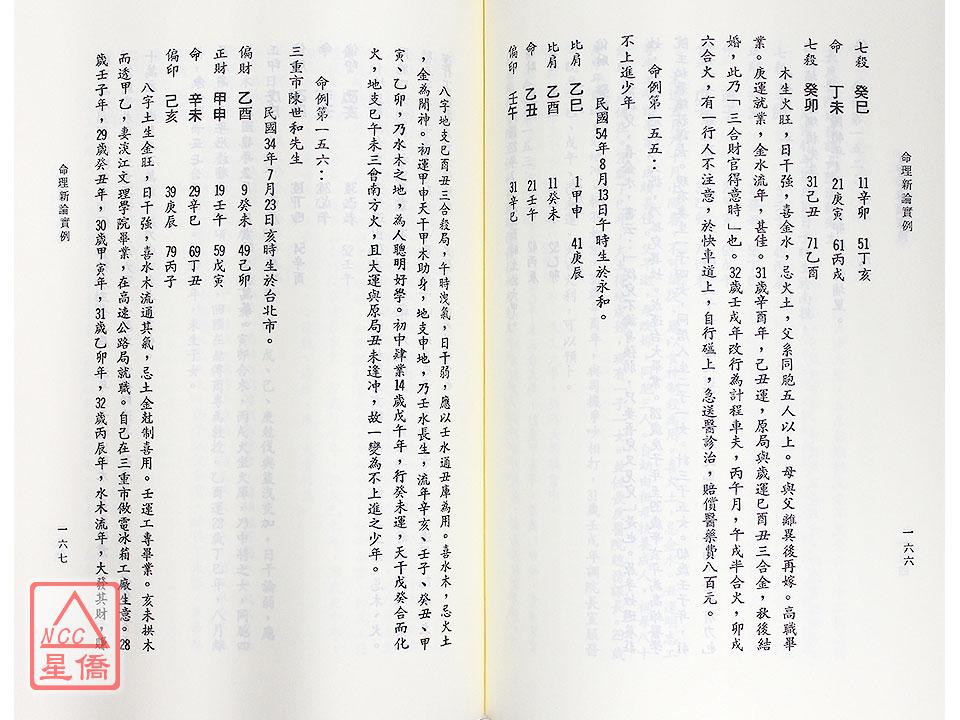 命理新論實例
一六六
七殺　癸巳　11辛卯　51丁亥
命　丁未　21庚寅　61丙戌
七殺　癸卯　31己丑　71乙酉
木生火旺，日干強，喜金水，忌火土，父系同胞五人以上。母與父離異後再嫁。高職畢
業。庚運就業，金水流年，甚佳。31歲辛酉年，己丑運，原局與歲運巳酉丑三合金，秋後結
婚，此乃「三合財官得意時」也。32歲壬戌年改行為計程車夫，丙午月，午戌半合火，卯戌
六合火，有一行人不注意，於快車道上，自行碰上，急送醫診治，賠償醫藥費八百元。
命例第一五五：
不上進少年　民國54年8月13日午時生於永和。
比肩　乙巳　1甲申　41庚辰
比肩　乙酉　11癸未
命　乙丑　21壬午
偏印　壬午　31辛巳
八字地支巳酉丑三合殺局，午時洩氣，日干弱，應以壬水通丑庫為用。喜水木，忌火土
，金為閒神。初運甲申天干甲木助身，地支申地，乃壬水長生，流年辛亥、壬子、癸丑、甲
寅、乙卯，乃水木之地，為人聰明好學。初中肄業14歲戊午年，行癸未運，天干戊癸合而化
火，地支巳午未三會南方火，且大運與原局丑未逢冲，故一變為不上進之少年。
命例第一五六：
三重市陳世和先生
民國34年7月23日亥時生於台北市。
偏財　乙酉　9癸未　49己卯
正財　甲申　19壬午　59戊寅
命　辛未　29辛巳　69丁丑
偏印　己亥　39庚辰　79丙子
八字土生金旺，日干強，喜水木流通其氣，忌土金尅制喜用。壬運工專畢業。亥未拱木
而透甲乙，妻淡江文理學院畢業，在高速公路局就職。自己在三重市做電冰箱工廠生意。28
歲壬子年，29歲癸丑年，30歲甲寅年，31歲乙卯年，32歲丙辰年，水木流年，大發其財，賺
命理新論實例
一六七
NCC
星僑